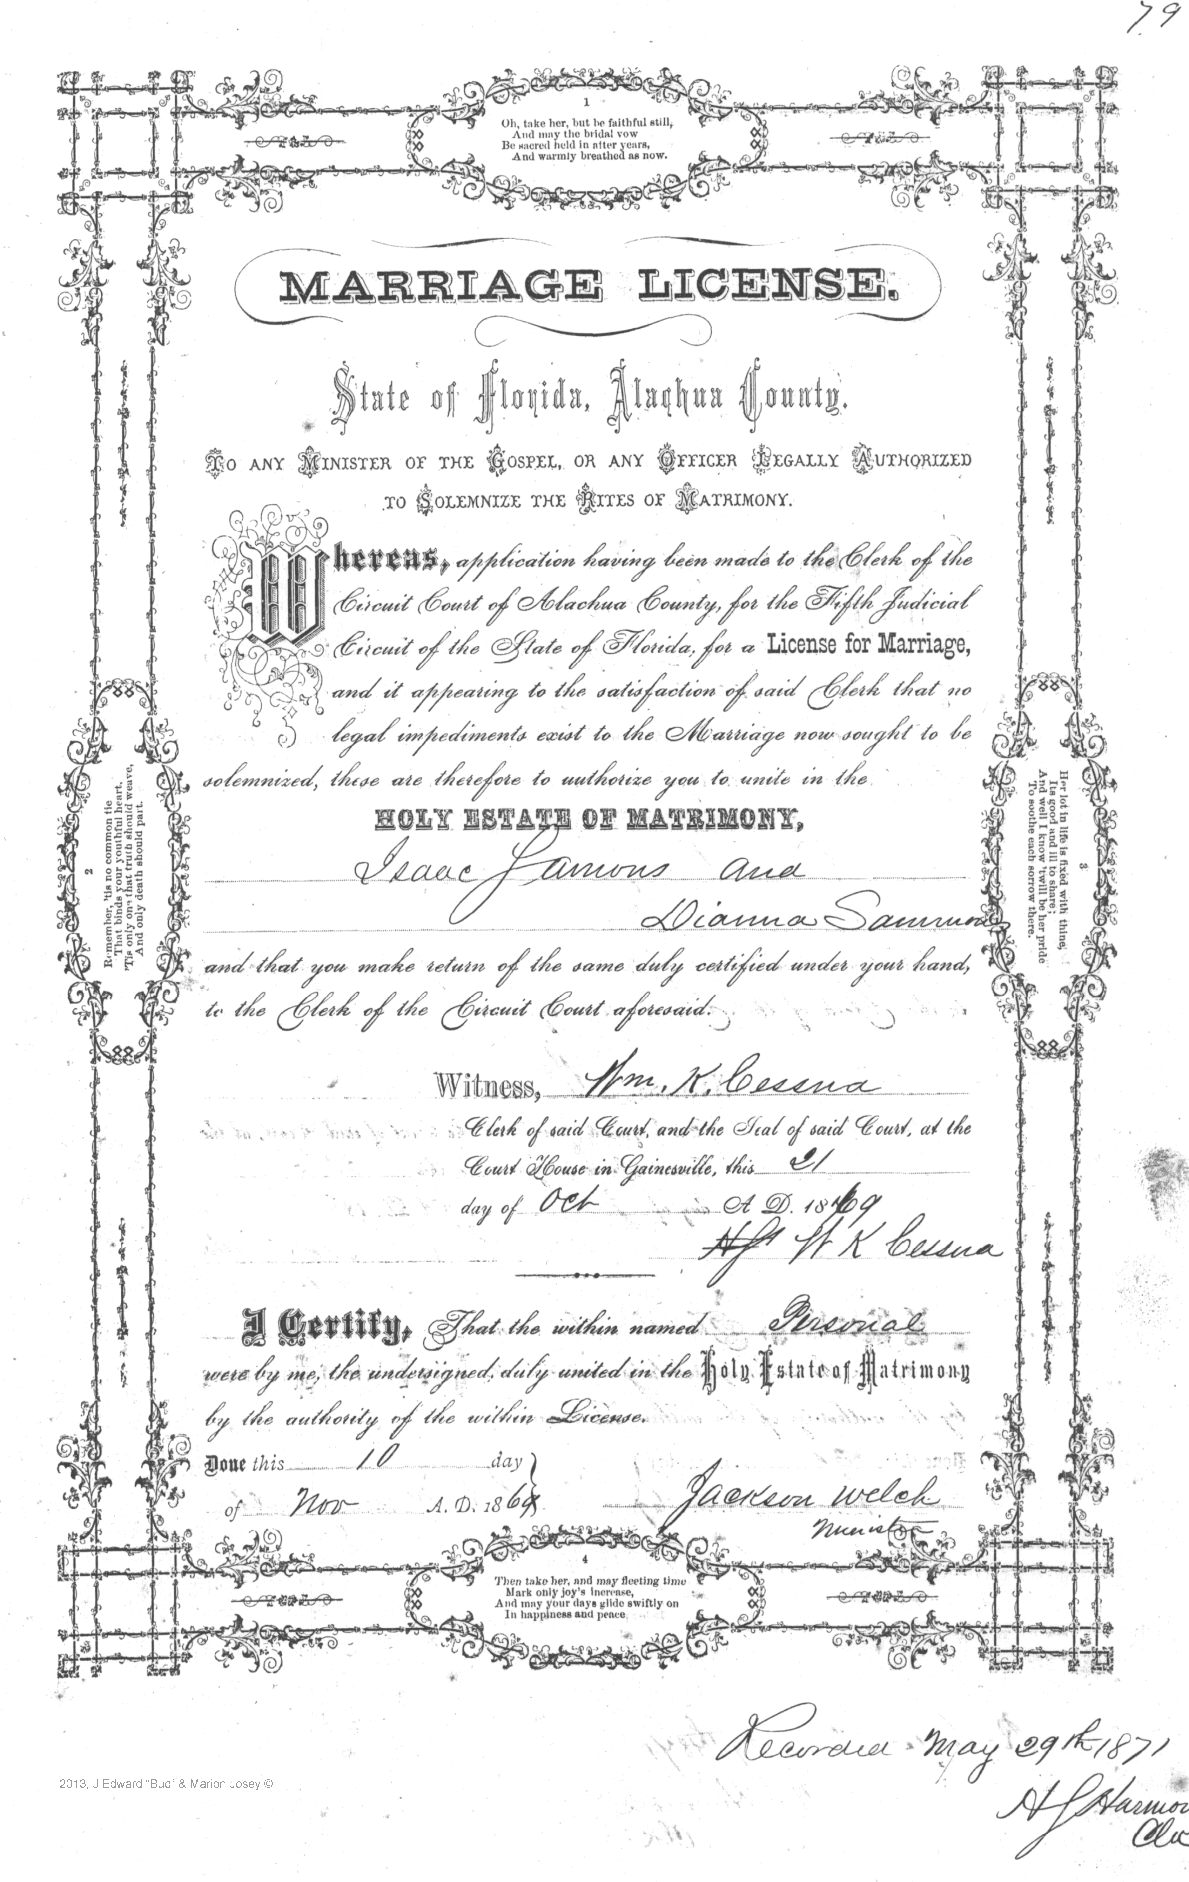 79
1
Oh, take her, but be faithful still,
And may the bridal vow
Be sacred held in after years,
And warmly breathed as now.
MARRIAGE LICENSE.
State of Florida, Alachua County.
TO ANY MINISTER OF THE GOSPEL, OR ANY OFFICER LEGALLY AUTHORIZED
TO SOLEMNIZE THE RITES OF MATRIMONY.
Whereas, application having been made to the Clerk of the
Circuit Court of Alachua County, for the Fifth Judicial
Circuit of the State of Florida, for a License for Marriage,
and it appearing to the satisfaction of said Clerk that no
legal impediments exist to the Marriage now sought to be
solemnized, these are therefore to authorize you to unite in the
HOLY ESTATE OF MATRIMONY,
Isaac and
Dianna Sammons
and that you make return of the same duly certified under your hand,
to the Clerk of the Circuit Court aforesaid.
Witness, Wm. K. Cessna
Clerk of said Court, and the Seal of said Court, at the
Court House in Gainesville, this 21
day of Oct A D. 1869
W K Cessna
I Certify, That the within named Personal
were by me, the undersigned, duly united in the Holy Estate of Matrimony
by the authority of the within License.
Done this 10 day
of Nov A. D. 1869
Jackson Welch
Minister
2
Remember, 'tis no common tie
That binds your youthful heart,
'Tis only one that truth should weave,
And only death should part.
3
Her lot in life is fixed with thine,
Its good and ill to share;
And well I know 'twill be her pride
To soothe each sorrow there.
4
Then take her, and may fleeting time
Mark only joy's increase,
And may your days glide swiftly on
In happiness and peace.
Recorded May 29th 1871
H G Harmon
2013, J Edward "Bud" & Marion Josey ©